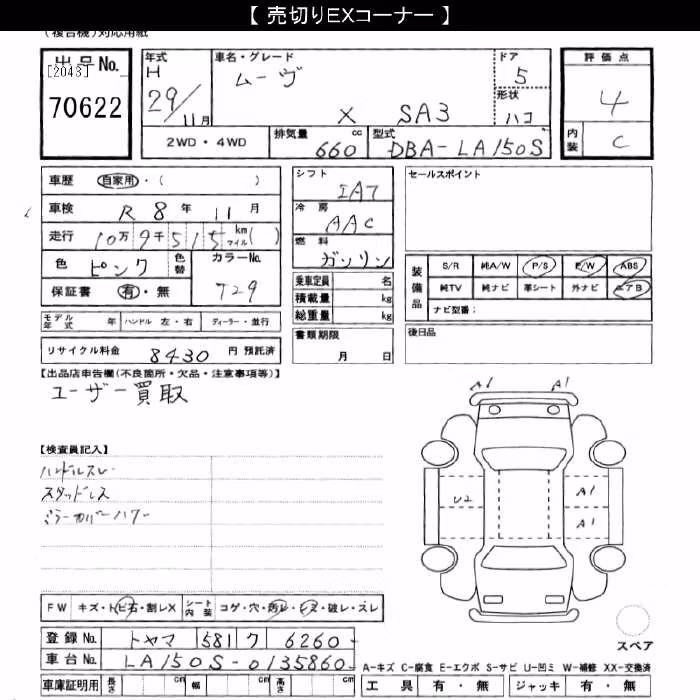 【 売切りEXコーナー 】
(複合機)対応用紙
出品No.
[2043]
70622
年式
H
29/11月
車名・グレード
ムーヴ
X SA3
ドア
5
形状
ハコ
評価点
4
内装
C
2WD・4WD
排気量
660 cc
型式
DBA-LA150S
車歴 自家用・( )
車検 R 8 年 11 月
走行 10万 9千 515 km マイル( )
色 ピンク 色替
カラーNo.
729
保証書 有・無
シフト
IAT
冷房
AAC
燃料
ガソリン
乗車定員 名
積載量 kg
総重量 kg
セールスポイント
装備品
S/R 純A/W P/S P/W ABS
純TV 純ナビ 革シート 外ナビ エアB
ナビ型番:
モデル年式 年 ハンドル 左・右 ディーラー・並行
リサイクル料金 8430 円 預託済
書類期限
月 日
後日品
【出品店申告欄(不良箇所・欠品・注意事項等)】
ユーザー買取
A1 A1
【検査員記入】
ハンドルスレ
スタッドレス
ミラーカバーハゲー
U2 A1
A1
FW キズ・トビ石・割レX
シート内装 コゲ・穴・汚レ・シミ・破レ・スレ
スペア
登録No. トヤマ 581 ク 6260
車台No. LA150S-0135860
A-キズ C-腐食 E-エクボ S-サビ U-凹ミ W-補修 XX-交換済
車庫証明用 長さ cm 幅 cm 高さ cm
工具 有・無 ジャッキ 有・無